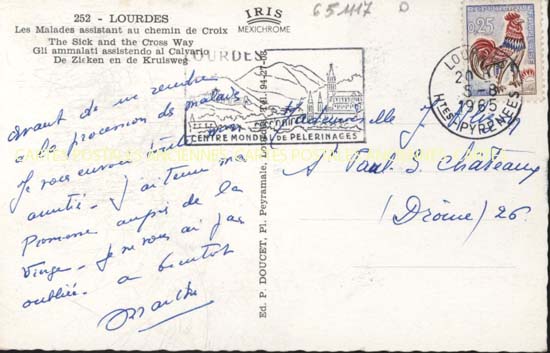 252 - LOURDES
Les Malades assistant au chemin de Croix
The Sick and the Cross Way
Gli ammalati assistendo al Calvario
De Zieken en de Kruisweg
IRIS
MEXICHROME
651117 D
0,25
LOURDES
20 H
5-8
1965
HTES PYRENEES
LOURDES
CENTRE MONDIAL DE PELERINAGES
avant de me rendre
à la procession des malades
Je vous envoie toute mon
amitié. J'ai tenu ma
Promesse auprès de la
Vierge. Je ne vous ai pas
oubliée. à bientôt
Marthe
Ed. P. DOUCET, Pl. Peyramale, Lourdes
Mademoiselle J.
à St Paul 3 Châteaux
(Drôme) 26.